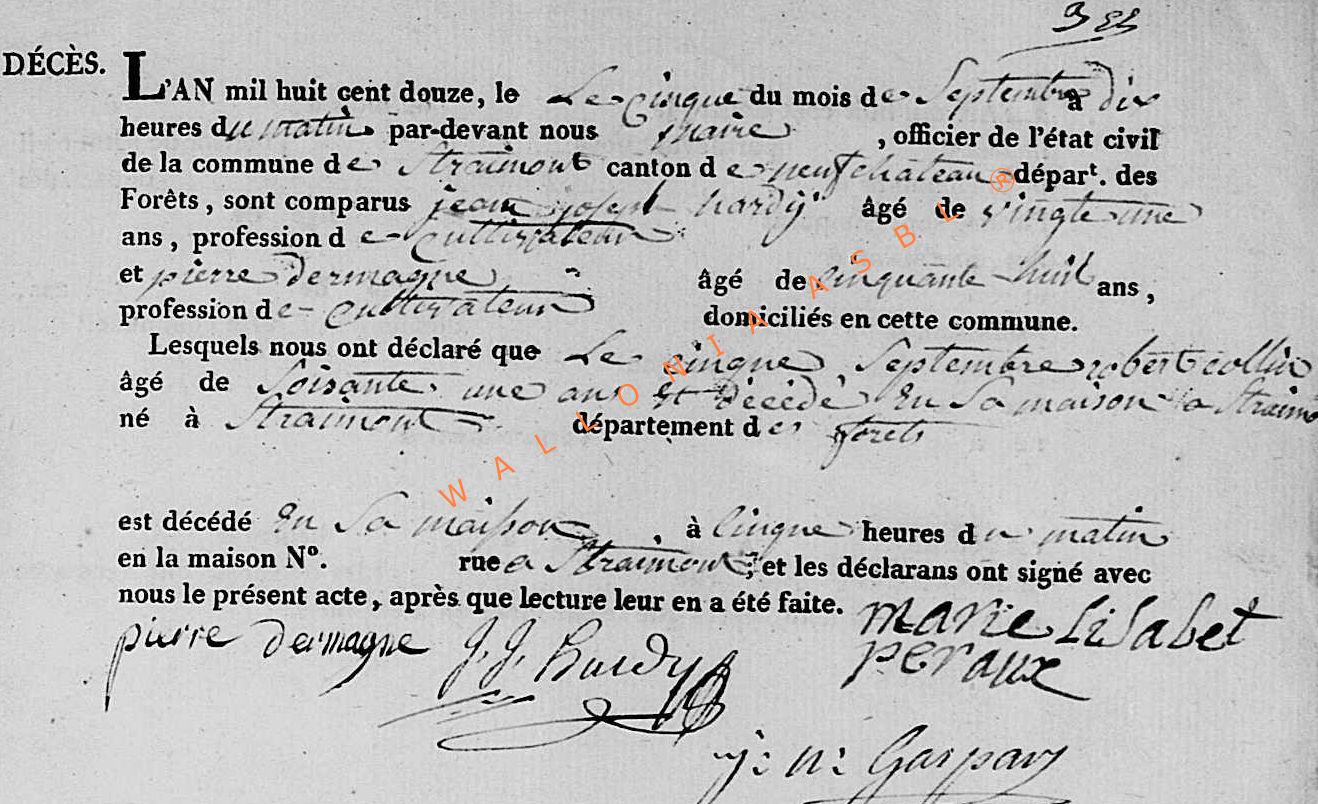 DÉCÈS.
L'AN mil huit cent douze, le Le cinque du mois de Septembre à dix
heures du matin par-devant nous maire , officier de l'état civil
de la commune de Straimont canton de neufchateau dépar^t. des
Forêts, sont comparus jean joseph hardÿ âgé de vingte une
ans, profession de Cultivateur
et pierre Dermagne âgé de cinquante huit ans,
profession de cultivateur domiciliés en cette commune.
Lesquels nous ont déclaré que Le cinque Septembre robert collin
âgé de Soisante une ans Et Décédé En Sa maison a Straimo
né à Straimont département des forets
est décédé En Sa maison , à Cinque heures du matin
en la maison N°. rue a Straimont ; et les déclarans ont signé avec
nous le présent acte, après que lecture leur en a été faite.
marie Lisabet
pierre Dermagne J. J. hardy
peraux
j: n: Gaspar
WALLONIA ASBL ®